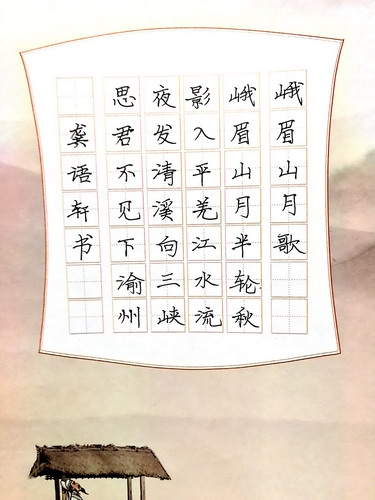 峨眉山月歌
峨眉山月半轮秋
影入平羌江水流
夜发清溪向三峡
思君不见下渝州
龚语轩书